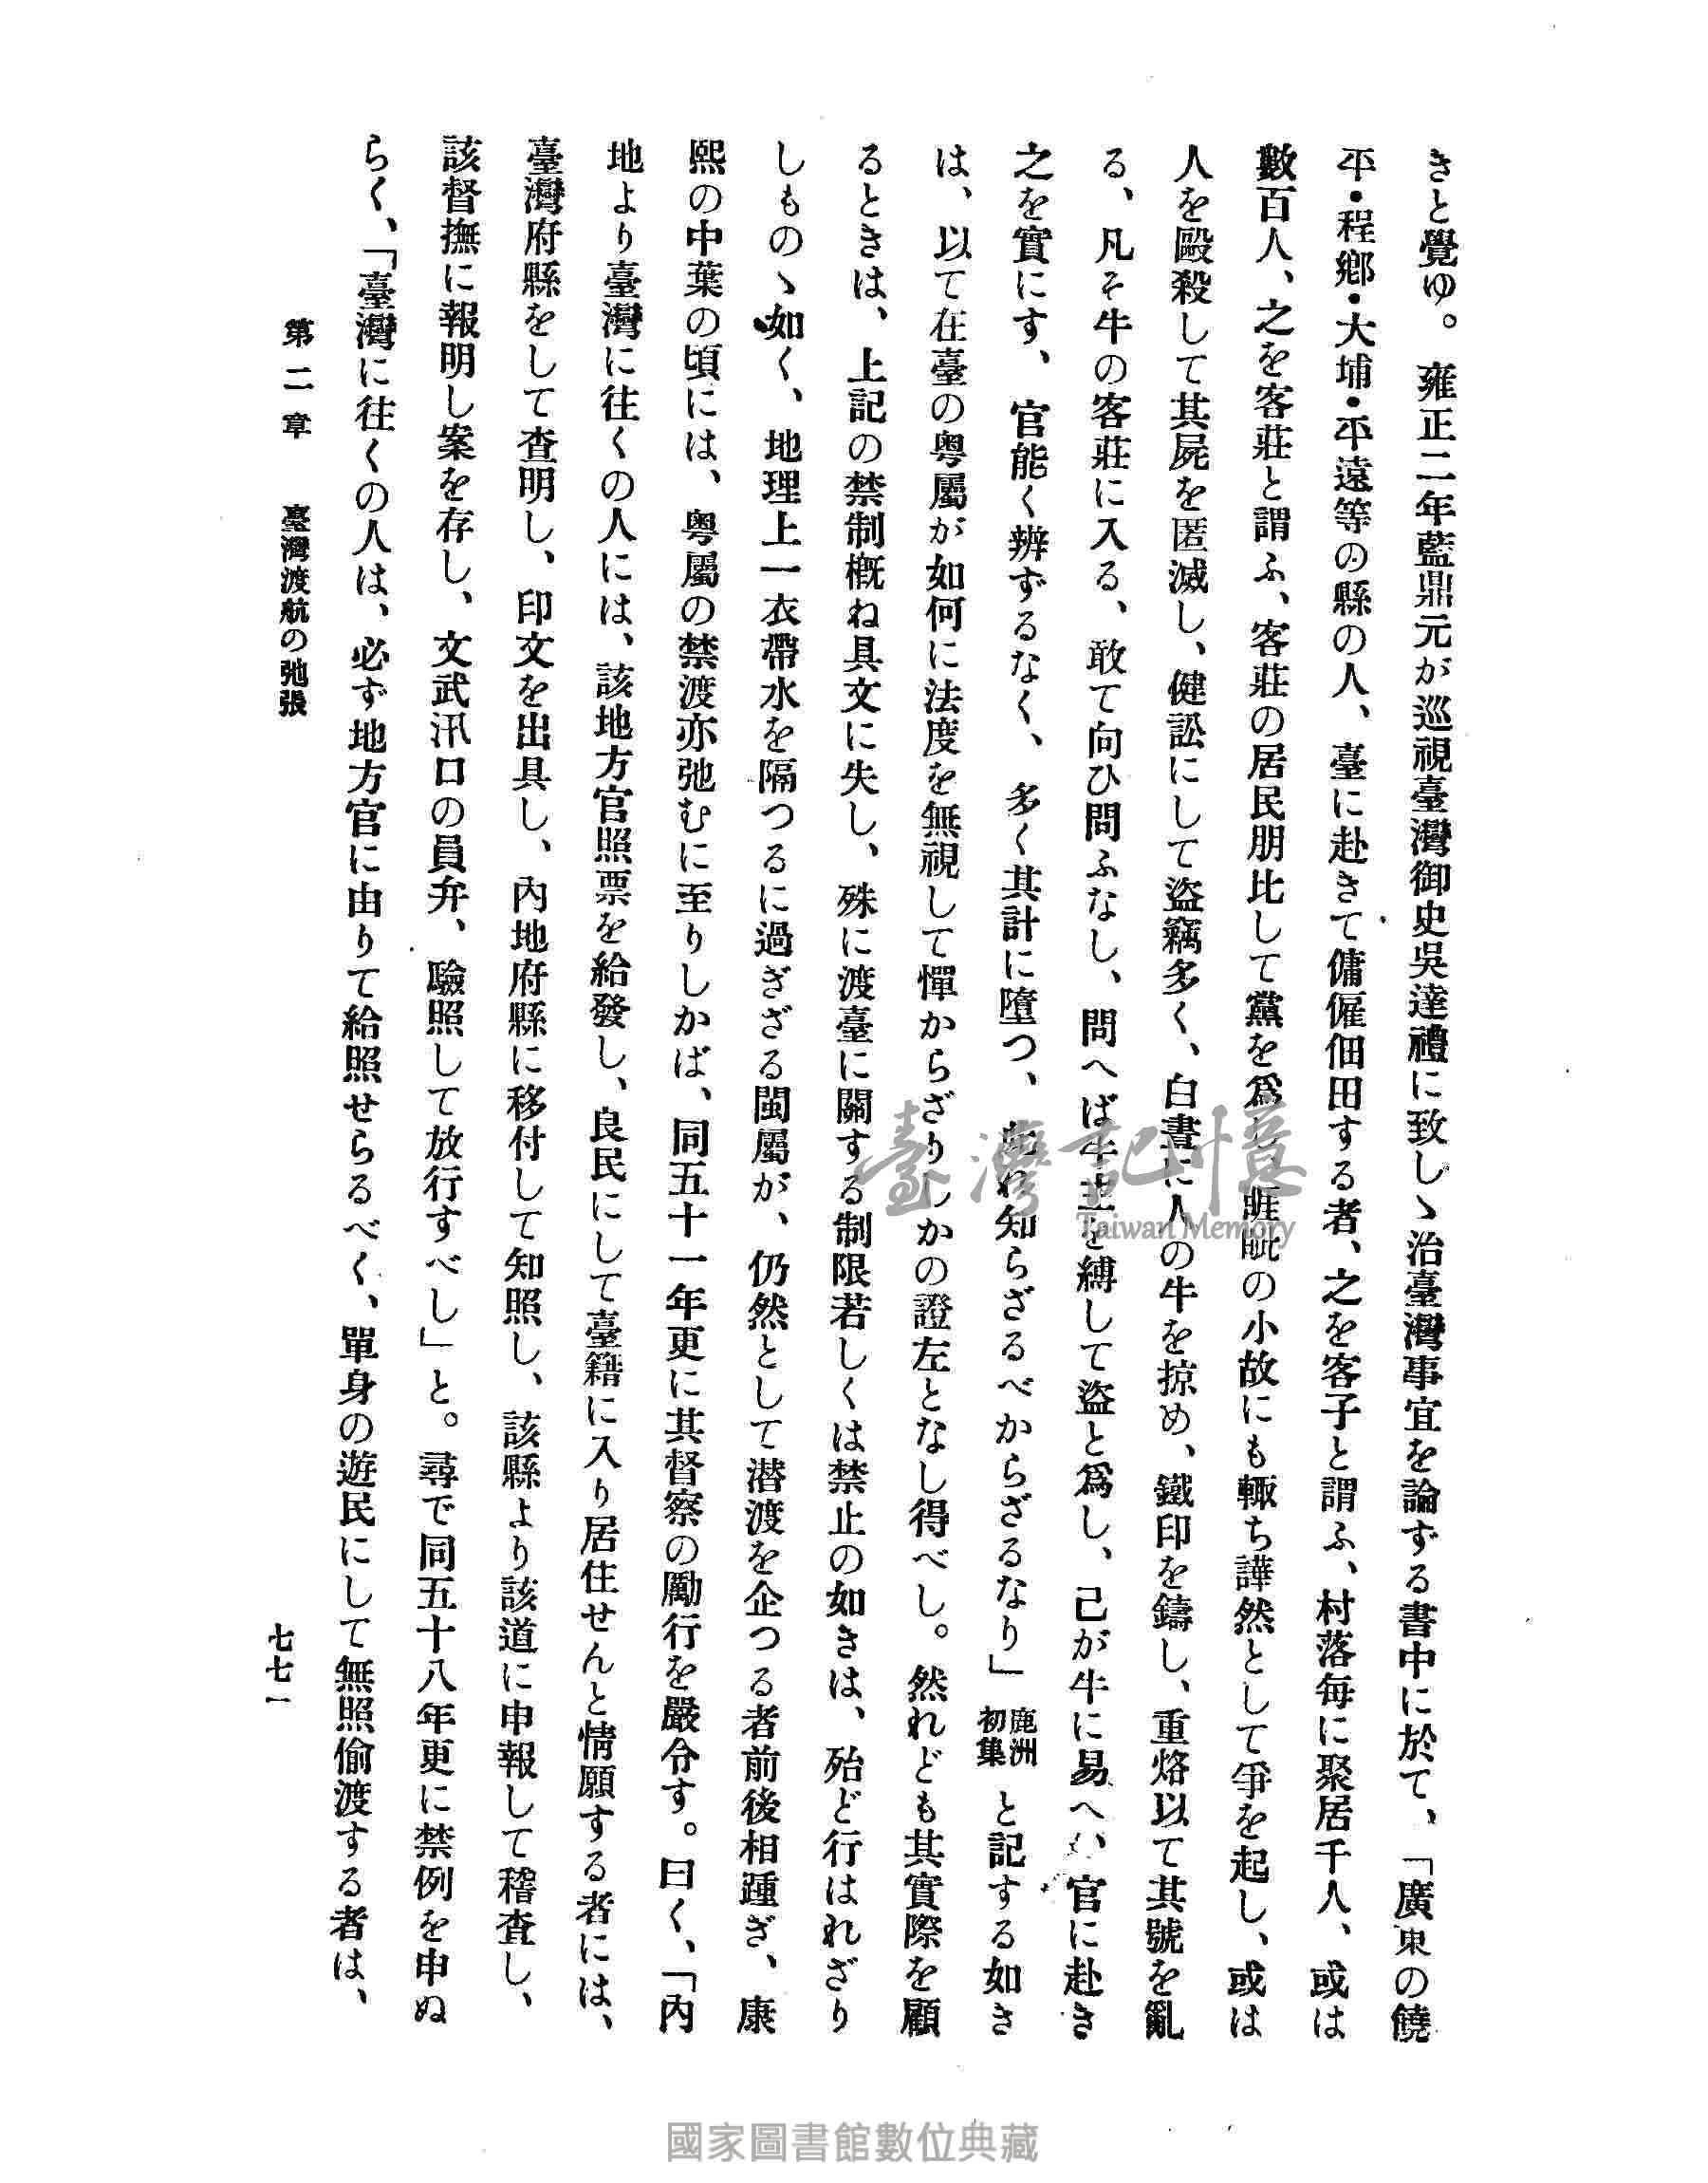 きと覺ゆ。雍正二年藍鼎元が巡視臺灣御史吳達禮に致しゝ治臺灣事宜を論ずる書中に於て、「廣東の饒
平・程鄕・大埔・平遠等の縣の人、臺に赴きて傭雇佃田する者、之を客子と謂ふ、村落每に聚居千人、或は
數百人、之を客莊と謂ふ、客莊の居民朋比して黨を爲し、睚眦の小故にも輙ち譁然として爭を起し、或は
人を毆殺して其屍を匿滅し、健訟にして盜竊多く、白晝に人の牛を掠め、鐵印を鑄し、重烙以て其號を亂
る、凡そ牛の客莊に入る、敢て向ひ問ふなし、問へば牛主を縛して盜と爲し、己が牛に易へ、官に赴き
之を實にす、官能く辨ずるなく、多く其計に墮つ、知らざるべからざるなり」鹿洲初集と記する如き
は、以て在臺の粵屬が如何に法度を無視して憚からざりしかの證左となし得べし。然れども其實際を顧
るときは、上記の禁制槪ね具文に失し、殊に渡臺に關する制限若しくは禁止の如きは、殆ど行はれざり
しものゝ如く、地理上一衣帶水を隔つるに過ぎざる閩屬が、仍然として潜渡を企つる者前後相踵ぎ、康
熙の中葉の頃には、粵屬の禁渡亦弛むに至りしかば、同五十一年更に其督察の勵行を嚴令す。曰く、「內
地より臺灣に往くの人には、該地方官照票を給發し、良民にして臺籍に入り居住せんと情願する者には、
臺灣府縣をして査明し、印文を出具し、內地府縣に移付して知照し、該縣より該道に申報して稽査し、
該督撫に報明し案を存し、文武汛口の員弁、驗照して放行すべし」と。尋で同五十八年更に禁例を申ぬ
らく、「臺灣に往くの人は、必ず地方官に由りて給照せらるべく、單身の遊民にして無照偷渡する者は、
第二章 臺灣渡航の弛張
七七一
臺灣記憶
Taiwan Memory
國家圖書館數位典藏